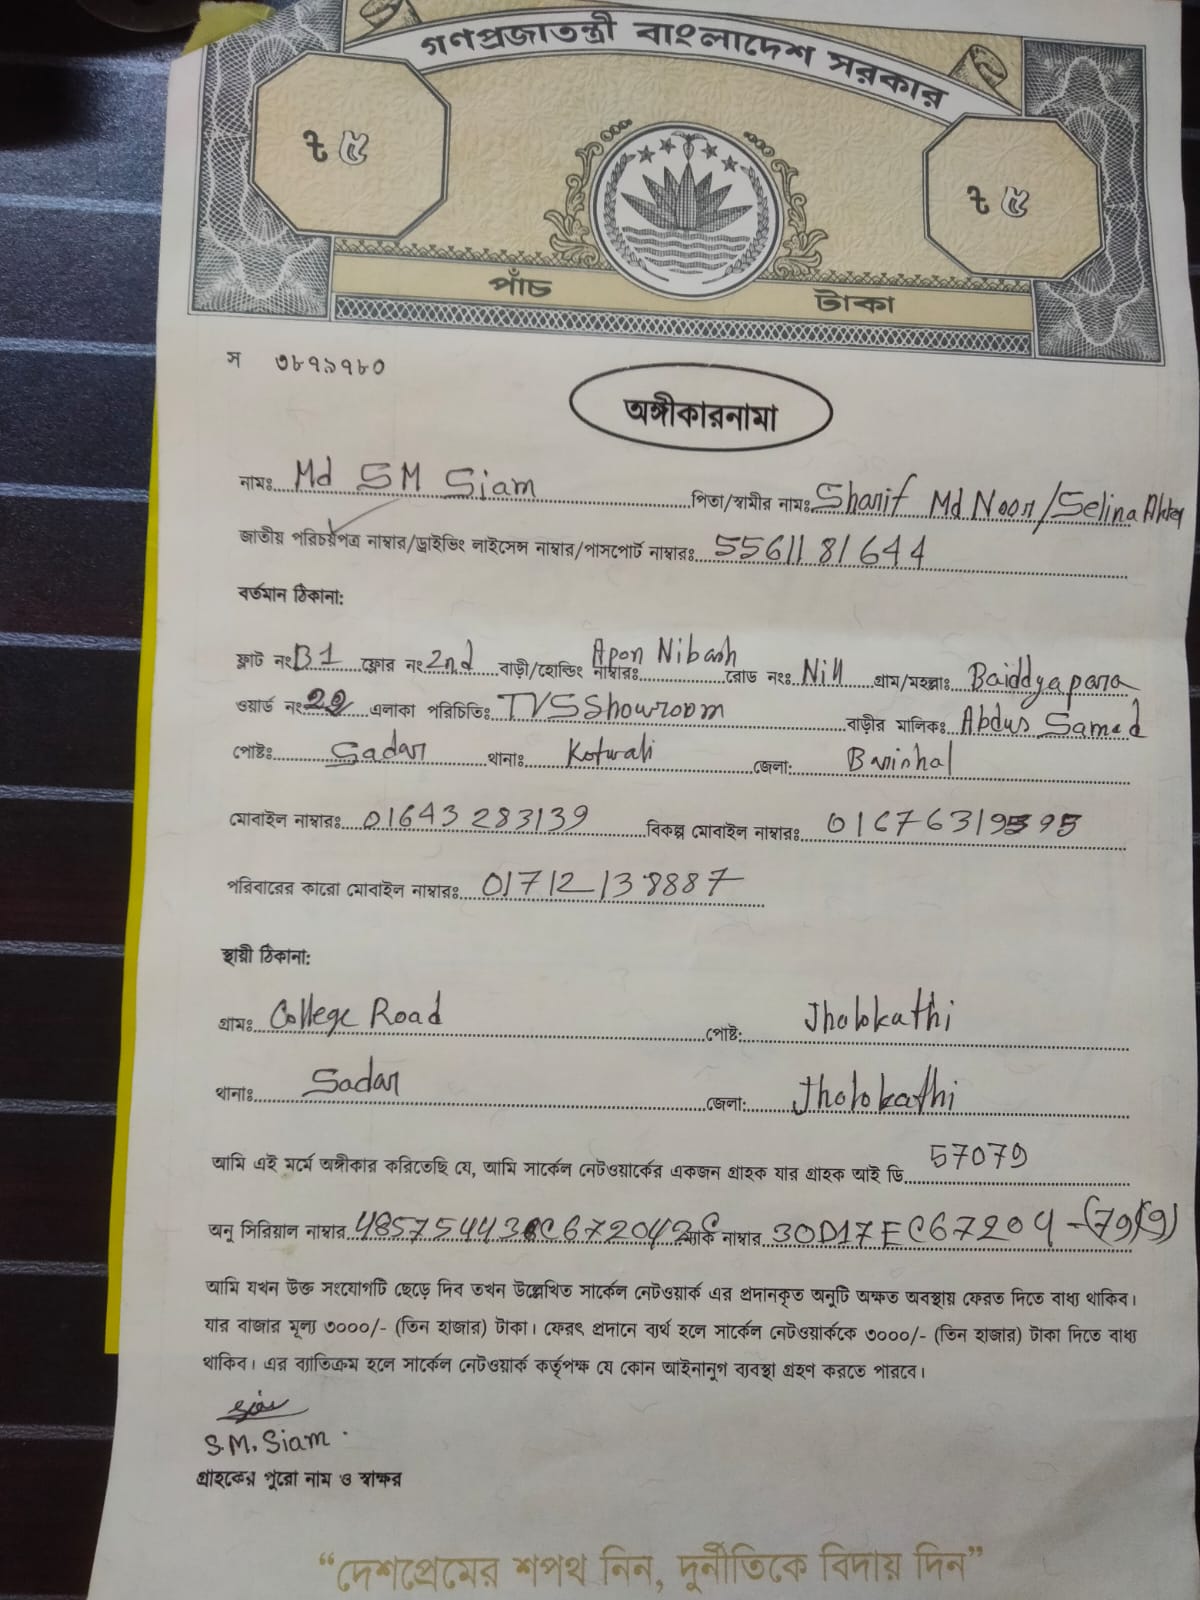 গণপ্রজাতন্ত্রী বাংলাদেশ সরকার
৳ ৫
৳ ৫
পাঁচ টাকা
স ৩৮৭৯৭৮০
অঙ্গীকারনামা
নামঃ Md SM Siam পিতা/স্বামীর নামঃ Sharif Md Noor/Selina Akter
জাতীয় পরিচয়পত্র নাম্বার/ড্রাইভিং লাইসেন্স নাম্বার/পাসপোর্ট নাম্বারঃ 5561181644
বর্তমান ঠিকানা:
ফ্লাট নং B1 ফ্লোর নং 2nd বাড়ী/হোল্ডিং নাম্বারঃ Apon Nibash রোড নংঃ Nill গ্রাম/মহল্লাঃ Baiddyapara
ওয়ার্ড নং 22 এলাকা পরিচিতিঃ TVS Showroom বাড়ীর মালিকঃ Abdus Samad
পোষ্টঃ Sadar থানাঃ Kotwali জেলা: Barishal
মোবাইল নাম্বারঃ 01643283139 বিকল্প মোবাইল নাম্বারঃ
পরিবারের কারো মোবাইল নাম্বারঃ 01712138887
স্থায়ী ঠিকানা:
গ্রামঃ College Road পোষ্ট: Jhalokathi
থানাঃ Sadar জেলা: Jhalokathi
আমি এই মর্মে অঙ্গীকার করিতেছি যে, আমি সার্কেল নেটওয়ার্কের একজন গ্রাহক যার গ্রাহক আই ডি 57079
অনু সিরিয়াল নাম্বার ম্যাক নাম্বার 30D17EC67204 -(79)(9)
আমি যখন উক্ত সংযোগটি ছেড়ে দিব তখন উল্লেখিত সার্কেল নেটওয়ার্ক এর প্রদানকৃত অনুটি অক্ষত অবস্থায় ফেরত দিতে বাধ্য থাকিব।
যার বাজার মূল্য ৩০০০/- (তিন হাজার) টাকা। ফেরৎ প্রদানে ব্যর্থ হলে সার্কেল নেটওয়ার্ককে ৩০০০/- (তিন হাজার) টাকা দিতে বাধ্য
থাকিব। এর ব্যাতিক্রম হলে সার্কেল নেটওয়ার্ক কর্তৃপক্ষ যে কোন আইনানুগ ব্যবস্থা গ্রহণ করতে পারবে।
S.M. Siam
গ্রাহকের পুরো নাম ও স্বাক্ষর
“দেশপ্রেমের শপথ নিন, দুর্নীতিকে বিদায় দিন”